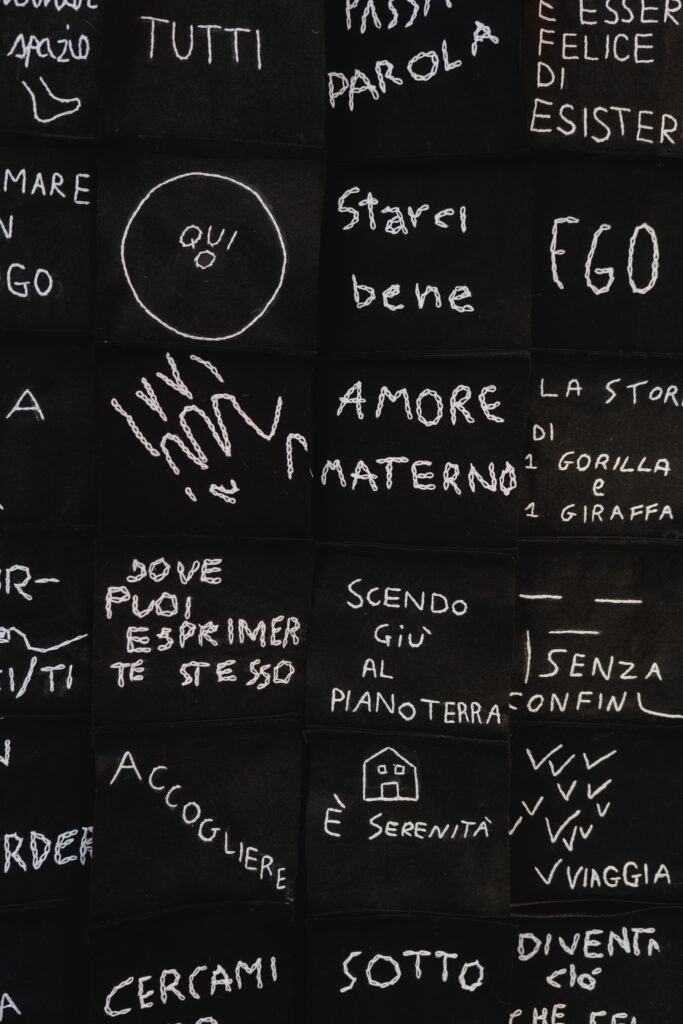 spazio
TUTTI
PASSA
PAROLA
E ESSER
FELICE
DI
ESISTER
MARE
N
OGO
QUI
Starci
bene
EGO
A
AMORE
MATERNO
LA STOR
DI
1 GORILLA
e
1 GIRAFFA
R-
I/TI
DOVE
PUOI
ESPRIMER
TE STESSO
SCENDO
GIÙ
AL
PIANOTERRA
SENZA
CONFINI
N
RDER
ACCOGLIERE
È SERENITÀ
VIAGGIA
A
CERCAMI
SOTTO
DIVENTA
CIÓ
CHE SEI